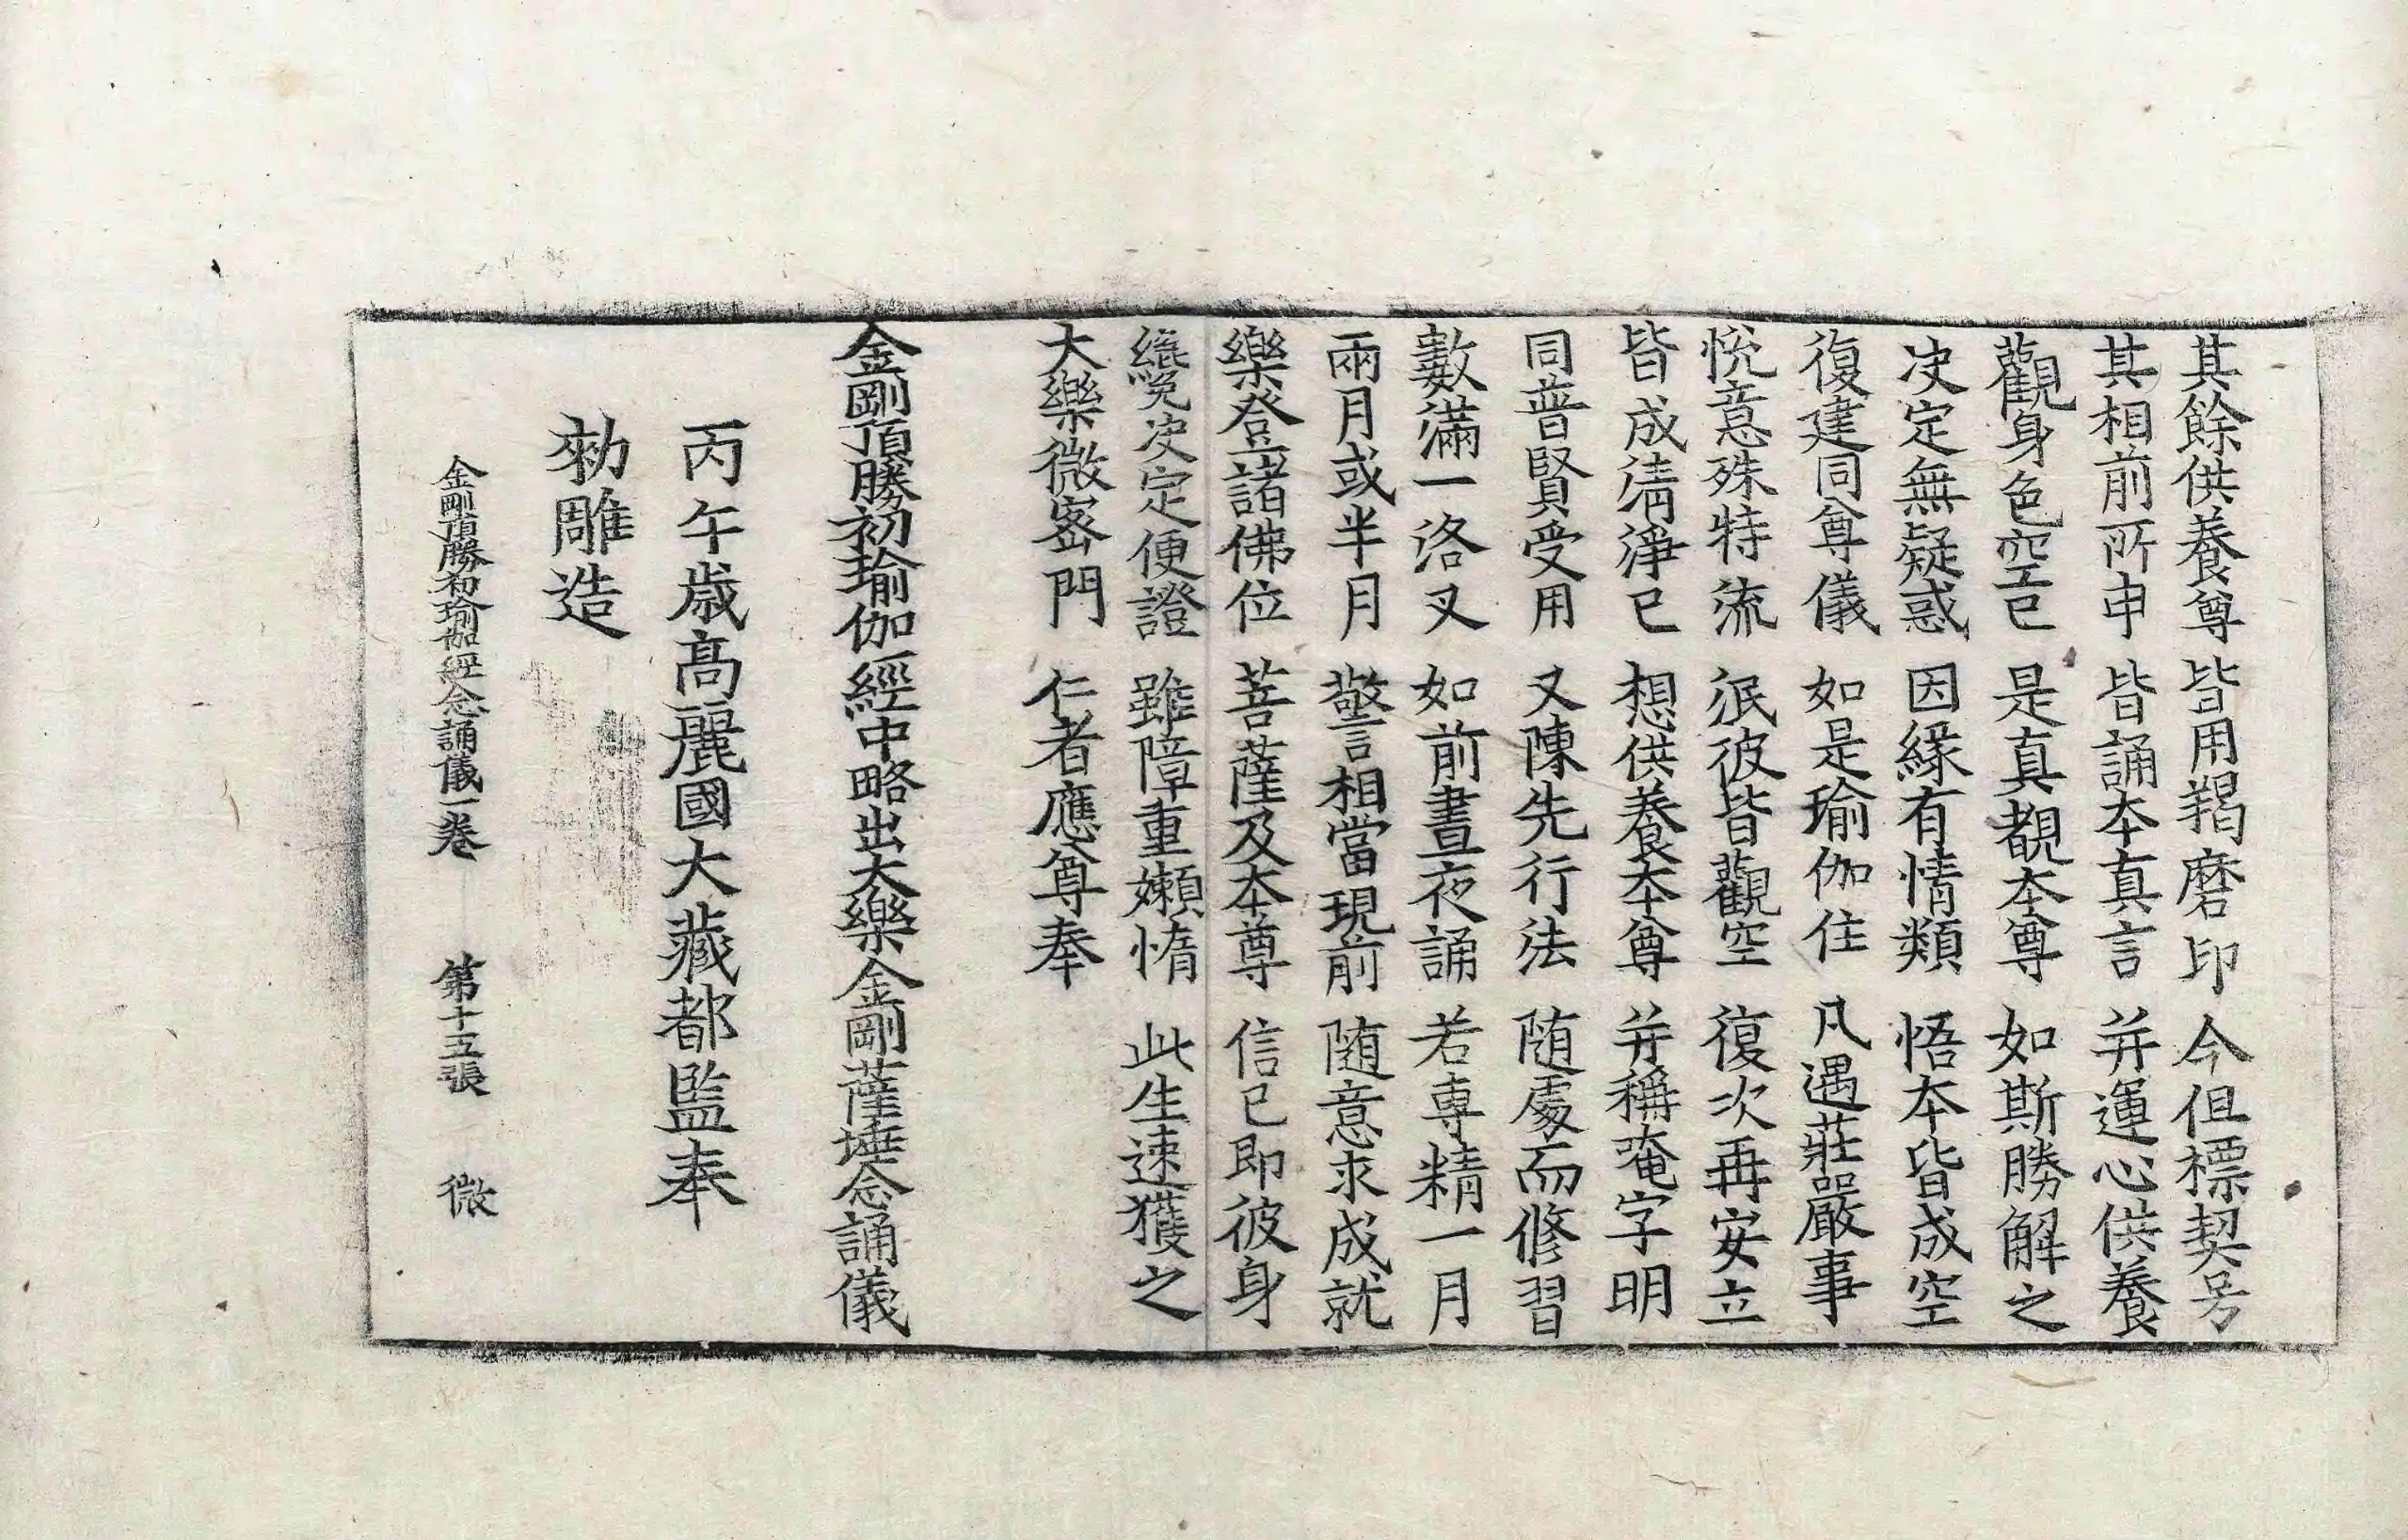 其餘供養尊 皆用羯磨印 今但標契号
其相前所申 皆誦本真言 并運心供養
觀身色空已 是真覩本尊 如斯勝解之
決定無疑惑 因緣有情類 悟本皆成空
復建同尊儀 如是瑜伽住 凡遇莊嚴事
悅意殊特流 泯彼皆觀空 復次再安立
皆成清淨已 想供養本尊 并稱唵字明
同普賢受用 又陳先行法 随處而修習
數滿一洛叉 如前晝夜誦 若專精一月
兩月或半月 警相當現前 随意求成就
樂登諸佛位 菩薩及本尊 信已即彼身
纔覽決定便證 雖障重嬾惰 此生速獲之
大樂微密門 仁者應尊奉
金剛頂勝初瑜伽經中略出大樂金剛薩埵念誦儀
丙午歲高麗國大藏都監奉
勑雕造
金剛頂勝初瑜伽經念誦儀一卷 第十五張 微